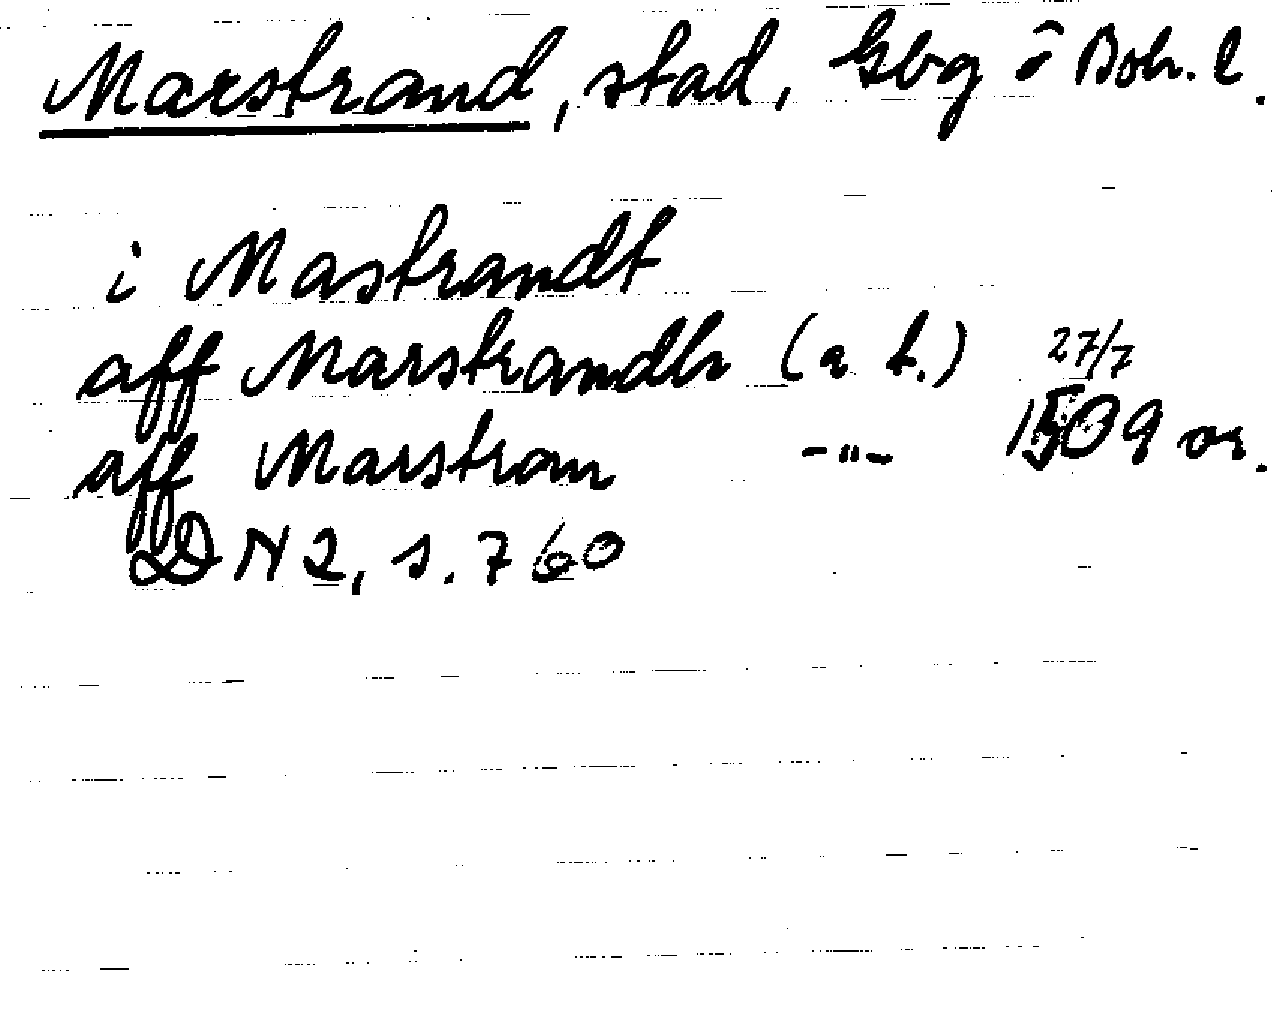 Marstrand, stad, Gbg o Boh. l.
i Mastrandt
aff Marstrandh (a t.) 27/7
aff Marstran -"- 1509 or.
DN 2, s. 760